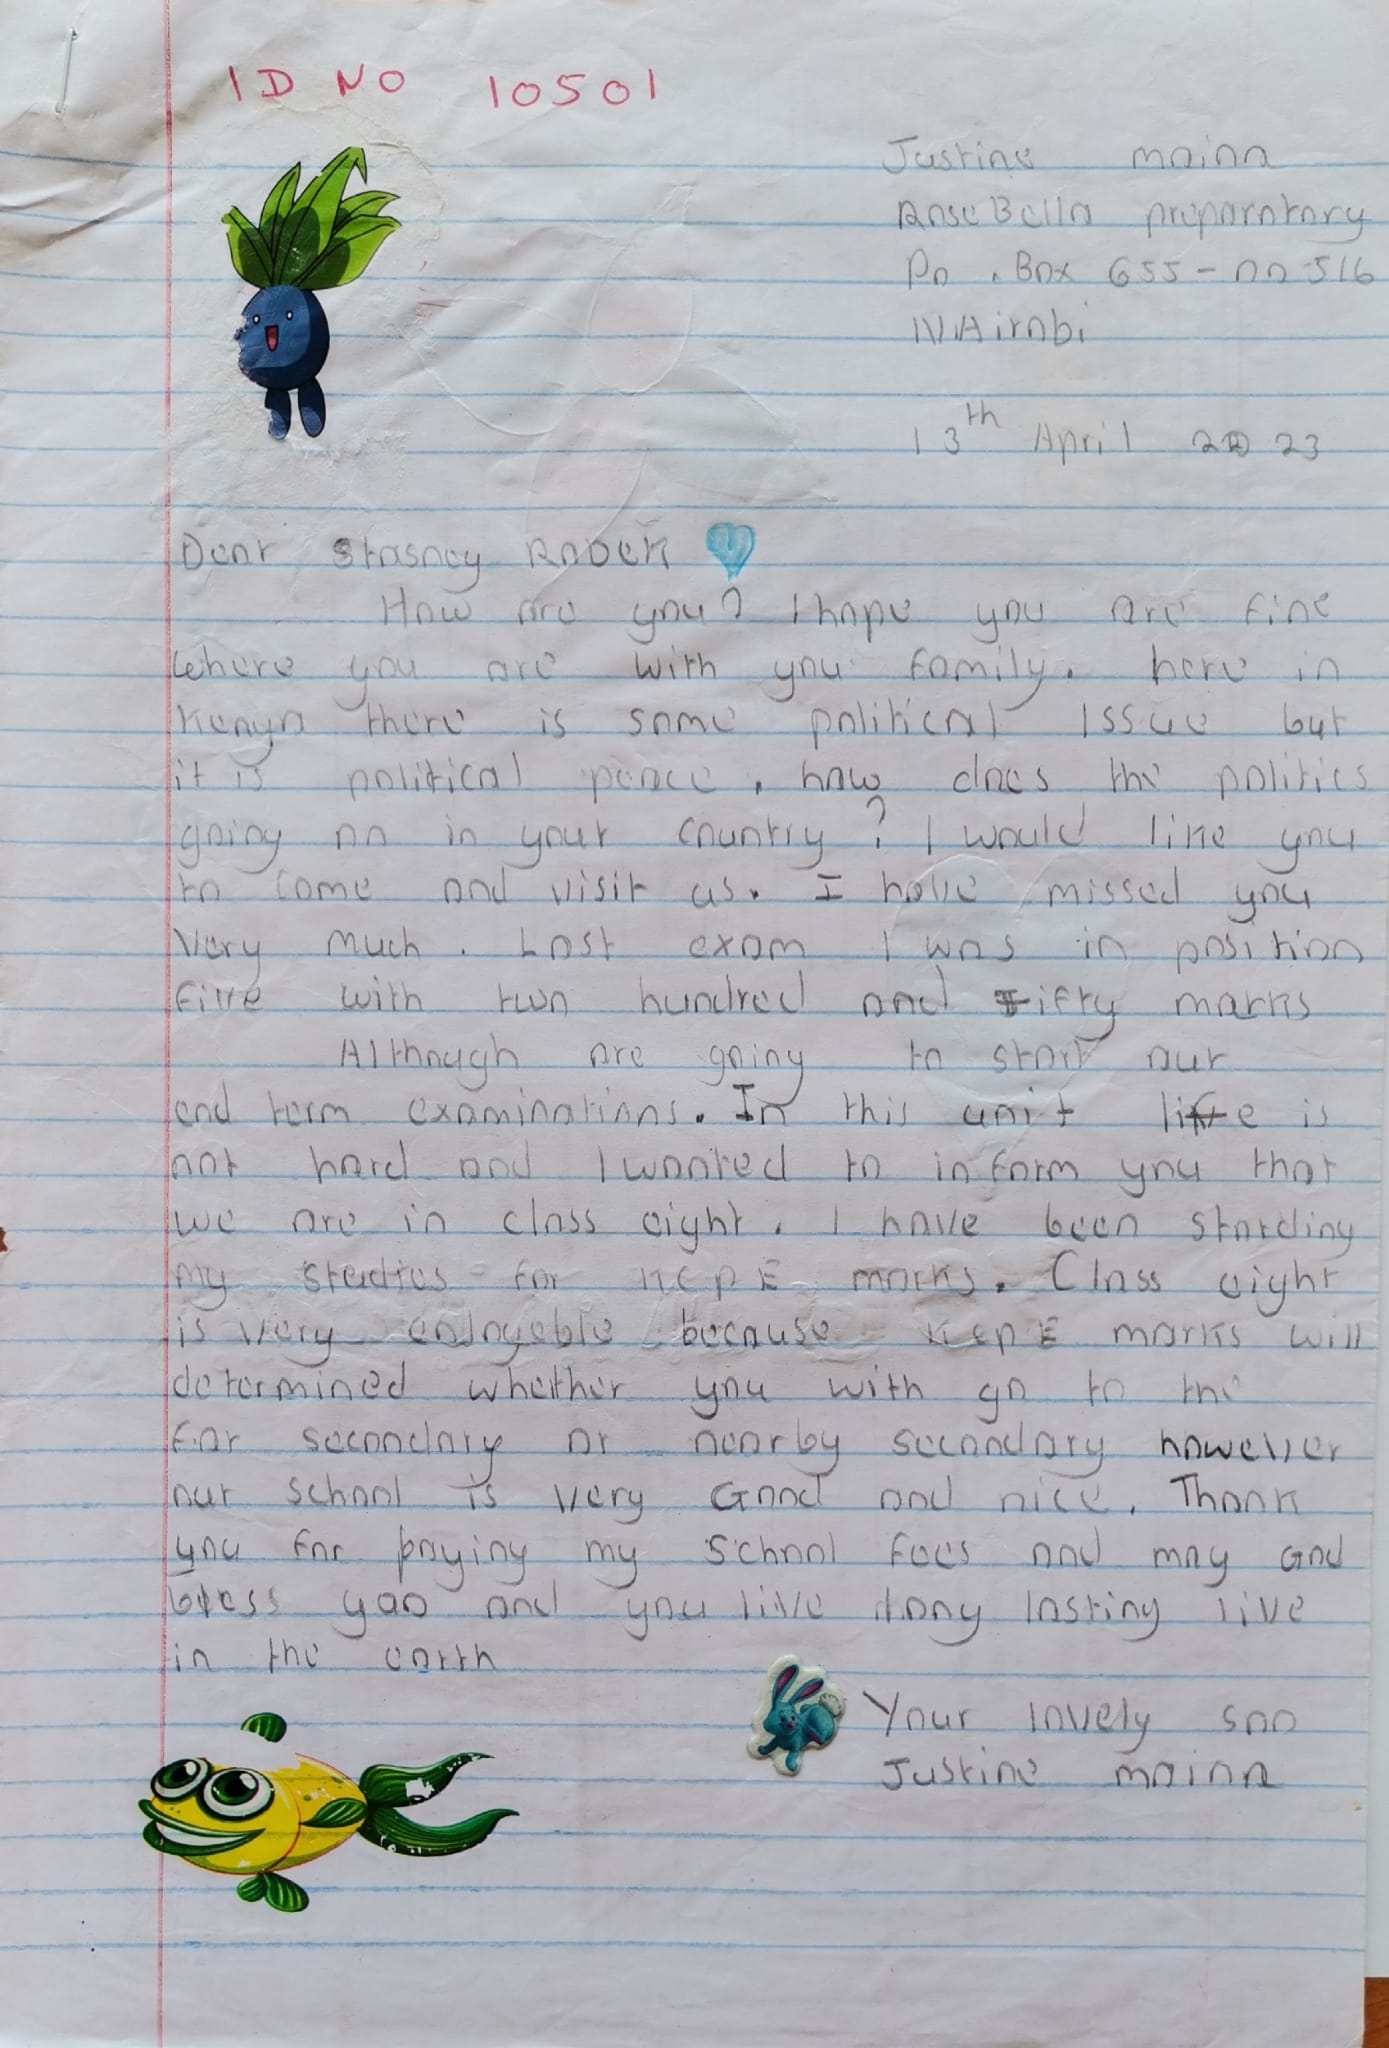 ID NO 10501
Justine maina
RoseBella preparatory
Po . Box 655-00516
NAirobi
13th April 2023
Dear Stasney Radek
How are you? I hope you are fine
where you are with you family. here in
Kenya there is some political Issue but
it is political peace. how does the politics
going on in your country? I would like you
to come and visit us. I have missed you
very much. Last exam I was in position
five with two hundred and fifty marks
Although are going to start our
end term examinations. In this unit life is
not hard and I wanted to inform you that
we are in class eight. I have been starding
my studies for KCPE marks. Class eight
is very enjoyeble because KcpE marks will
determined whether you with go to the
far secondary or nearby secondary however
our school is very Good and nice. Thank
you for paying my school fees and may God
bless you and you live long lasting live
in the earth
Your lovely son
Justine maina